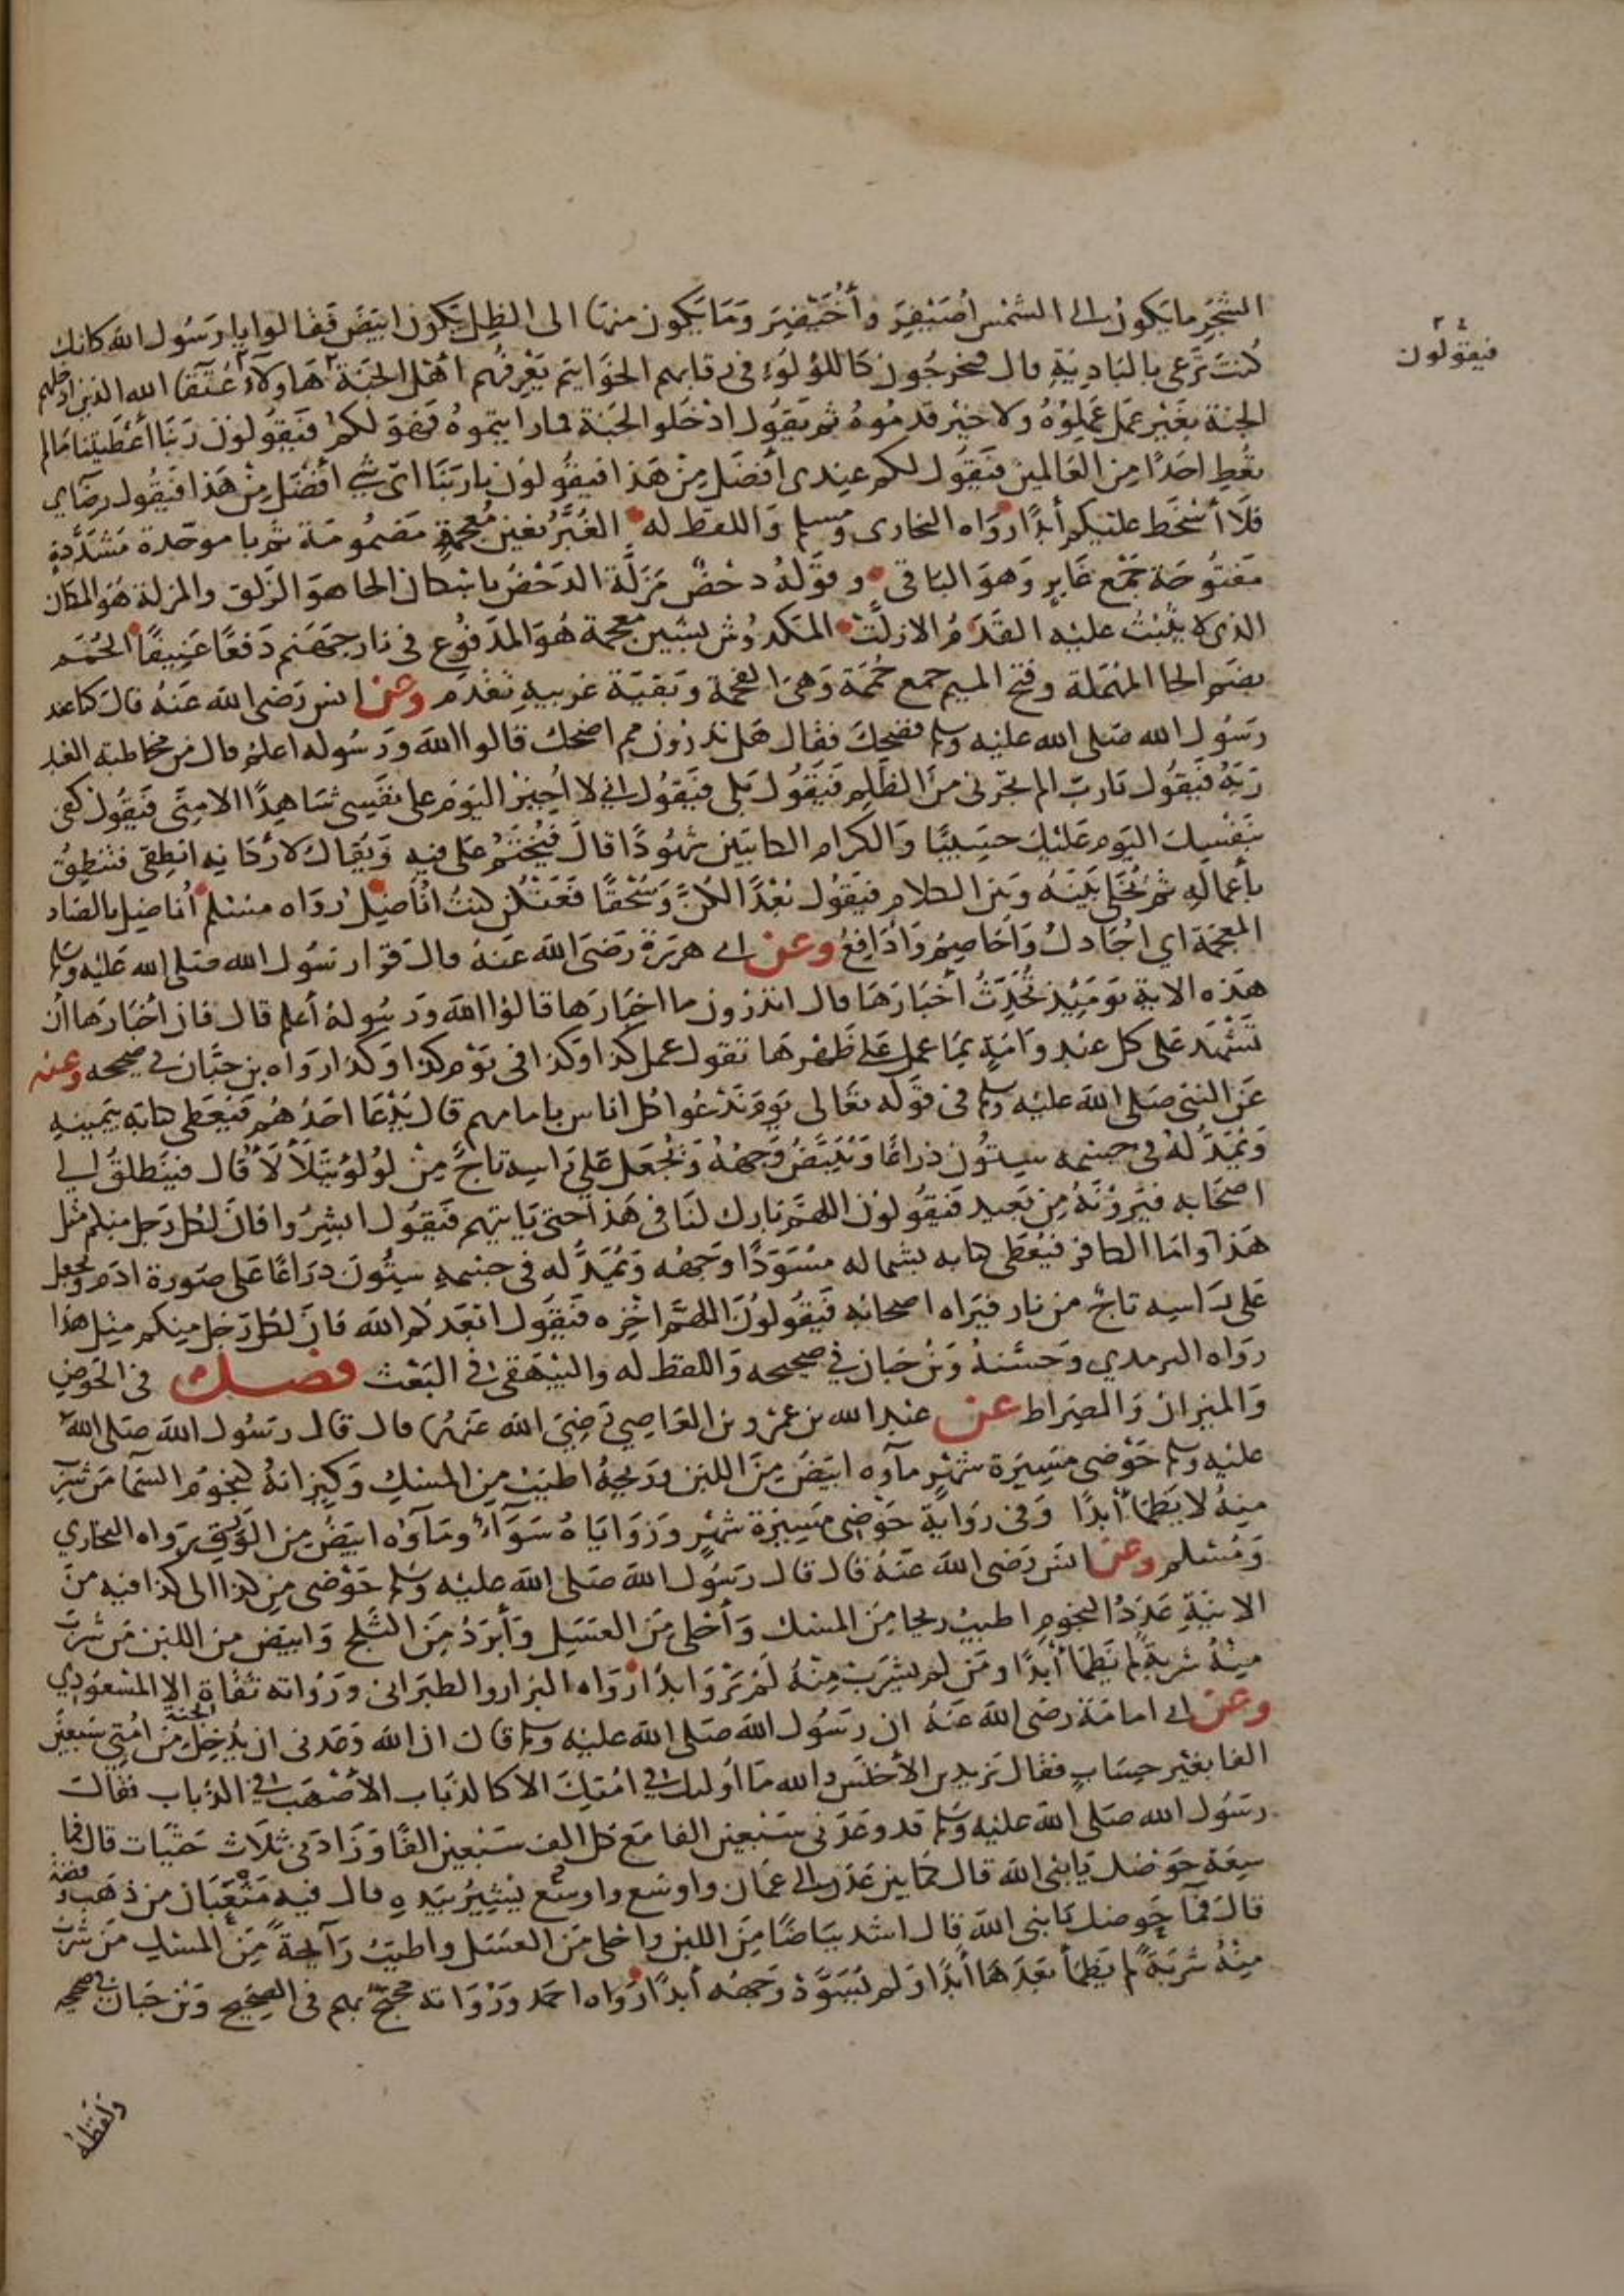 الشجر ما يكون الى الشمس اُصَيْفِرَ وأُخَيْضِرَ وَمَا يَكون منها الى الظِلِّ يَكون ابيَضَ فقالوا يا رسُول الله كانك
كُنتَ تَرْعى بالبَادِيَةِ قال فيخرجُون كَاللؤلؤء فى رقابهم الخوَايتم يَعْرِفُهم اَهْل الجَنة هَاولآءِ عُتَقَا الله الذين ادخلهم
الجنة بغَيْر عمل عَمِلوُهُ ولا خَيْر قدمُوهُ ثم يَقُول ادْخَلوا الجَنة فما رايتموهُ فهوَ لكمْ فَيَقُولونَ رَبَنَا أعْطيتَنا مَا لم
تعُطِ احَدًا مِن العَالمينَ فيَقُول لكم عِندى أَفضَل مِنْ هَذا فيقُولون يا ربَنَا اىّ شى افضَل مِنْ هَذا فيَقُول رضَاي
فلَا أَسْخَط عليكم أبدًا رواه البخارى ومسلم وَاللفظ له الغُبَّر بغين مُعجمةٍ مَضمُومَة ثم با موحّدة مَشدَّدةٍ
مَفتُوحَة جَمْع غابرٍ وَهوَ البَاقى وقوَلهُ دحْضٌ مَزلَّة الدَحْضُ باسْكان الحا هوَ الزلَق والمزلة هُوَ المكان
الذى لا يَثْبُتْ عليْه القدَمُ الا زلَّتْ المَكدوُش بشين معجمة هُوَ المدَفوُع فى نار جهَنم دَفعًا عَنِيفًا الحُمَم
بضَم الحا المهْمَلة وفتح الميم جمع حُمَمة وَهىَ الفحمة وَبَقيَة غريبهِ تقدم وعن انس رَضى الله عَنهُ قالَ كنا عند
رَسُول الله صَلى الله عليْه وسلم فضحِكَ فقال هَل تدرُون مم اضحك قالوا الله وَرَسُوله اعلمُ قال من مخاطبة العَبد
رَبَهُ فيَقُول يَا ربّ الم تجرنى منَ الظلم فيَقُول بَلى فيَقُول انى لا اُجِيزُ اليَوْم على نفسِى شاهِدًا الا مِنّى فيَقُول كفى
بنَفسِك اليَوم عَليْك حَسِيبًا وَالكرام الكاتبَين شهُودًا قالَ فيُخْتَمُ على فِيهِ وَيُقال لاَرْكانِهِ انطِقى فتنطِقُ
بأعمالهِ ثم يُخلَّى بَيْنَهُ وبَين الكلام فيَقُول بُعْدًا لكُنَّ وَسُحْقًا فعَنْكُن كنتُ أُناضِلُ رَوَاه مسْلم أُناضِل بالضاد
المعجَمة اي اجَادلُ وَاُخاصِمُ وَاُدَافِعُ وعن ابى هريرَة رَضىَ الله عَنهُ قال قرا رسُول الله صَلى الله عَليْه وسلم
هَذه الاية يوَمَئِذٍ تُحَدِثُ أَخبَارَهَا قال اتدرُون ما اخبَارَها قالوُا الله وَرسُولهُ أعلم قال فان أَخْبَارَها أن
تَشْهَدَ عَلى كل عَبدٍ وَامَةٍ بمَا عمل عَلى ظَهْرها تقول عمل كذا وكذا فى يوْم كذا وكذا رواه بن حِبَّان فى صحيحه وعنه
عَن النبى صَلى الله عليْه وسلم فى قوله تعَالى يوَم نَدْعُوا كل اناس بامامهم قال يُدْعَا احَدُهُم فَيُعْطى كتابه بِيَمِينهِ
وَيُمَدُّ لهُ فى جسْمه سِتُّون ذراعًا وَيُبَيَّضُ وَجهُهُ وَيُجْعَل عَلى راسِه تاجٌ مِنْ لوُلُؤ يَتَلَأْلَأُ قال فيَنطلقُ الى
اصحَابه فيَرَوْنَهُ مِن بَعيد فيَقُولوُن اللهُمَّ بَارك لنَا فى هَذا حتى يَاتيهم فيَقُول ابشِرُوا فانَّ لكُل رَجل منكم مثل
هَذا وامَّا الكافر فيُعْطى كتابه بشماله مسْوَدًا وَجهُه وَيُمَدُّ له فى جسْمهِ سِتُّونَ ذرَاعًا عَلى صُورَة ادَم وَيجعل
عَلى رَاسه تاجٌ من نار فيَرَاه اصحابُه فَيَقُولونَ اللهُمَّ اخْزِه فيَقُول ابعَدَكم الله فان لكُل رَجل مِنكم مِثل هذا
رَواه الترمذي وَحسَّنهُ وَبن حبان فى صحيحه وَاللفظ له والبَيْهَقى فى البَعْث فصل فى الحَوضِ
وَالميزان وَالصِرَاط عن عبْد الله بن عمْرو بن العَاصِي رَضِىَ الله عَنهُما قال قال رَسُول الله صَلى الله
عليْه وسلم حَوْضى مَسِيَرة شهْرٍ مآوه ابيَضُ مِنَ اللبَن وَريحهُ اطيَبُ مِن المسْكِ وَكِيزانهُ كنجُوم السَّمآ مَن شرِبَ
مِنهُ لا يَظمَأ أبدًا وَفى رِوَايةٍ حَوْضِى مَسِيرَة شَهْرٍ وَزوَايَاهُ سَوَآءٌ وَمَآوُه ابيَضُ مِن الوَرِق رَواه البخاري
وَمُسْلم وعن انَس رَضى الله عَنهُ قال قال رَسُول الله صَلى الله عليْه وسَلم حَوْضى مِن كذا الى كذا فيه منَ
الانيَةِ عَدَدُ النجُومِ اطيَبُ ريحًا مِنَ المسْك وَأَحْلى مِنَ العسَل وَأَبْرَدُ مِنَ الثَلج وَابيَض من اللبَن مَن شرِبَ
مِنْهُ شرْبَةً لم يَظمَأ أبَدًا ومَن لم يشرَبْ مِنْهُ لَمْ يَرْوَ ابدًا رَوَاه البزار والطبَرَانى وَرُوَاته ثقاة الا المسْعُودِي
وعن ابى امامَة رَضى الله عَنهُ ان رَسُول الله صَلى الله عليْه وسلم قال ان الله وَعَدنى ان يُدْخِل الجنة مِن اُمّتِى سَبعِينَ
الفا بغَيْر حِسَابٍ فقال يَزيد بن الأخنَس والله مَا اُولئك فى امّتِكَ الا كالذبَاب الأصْهَب فى الذُباب فقالَ
رسُول الله صَلى الله عليْه وسَلم قد وعَدَنى سَبْعين الفا مَع كل الف سَبْعين الفًا وَزَادَنى ثلَاثَ حَثيَات قال فما
سِعَة حَوْضك يَا بنى الله قال كما بين عَدن الى عمَان واوسَع واوسَع يُشِيرُ بيَدِهِ قال فيه مَثْعَبَان من ذهَب وفضة
قالَ فمآ حَوضك يَا بنى الله قال اشد بيَاضًا مِنَ اللبن واحلى مَن العسَل واطيَبُ رَآئحةً مِنَ المسْكِ مَن شرِبَ
مِنْهُ شرْبَةً لم يَظمَأ بَعْدَهَا أبدًا وَلم يَسْوَدّ وَجهُه أبدًا رَوَاه احمَد وَرُوَاته محتجّ بهم فى الصِحيح وَبن حَبان فى صحيحه
ولفظهُ
فيقولون